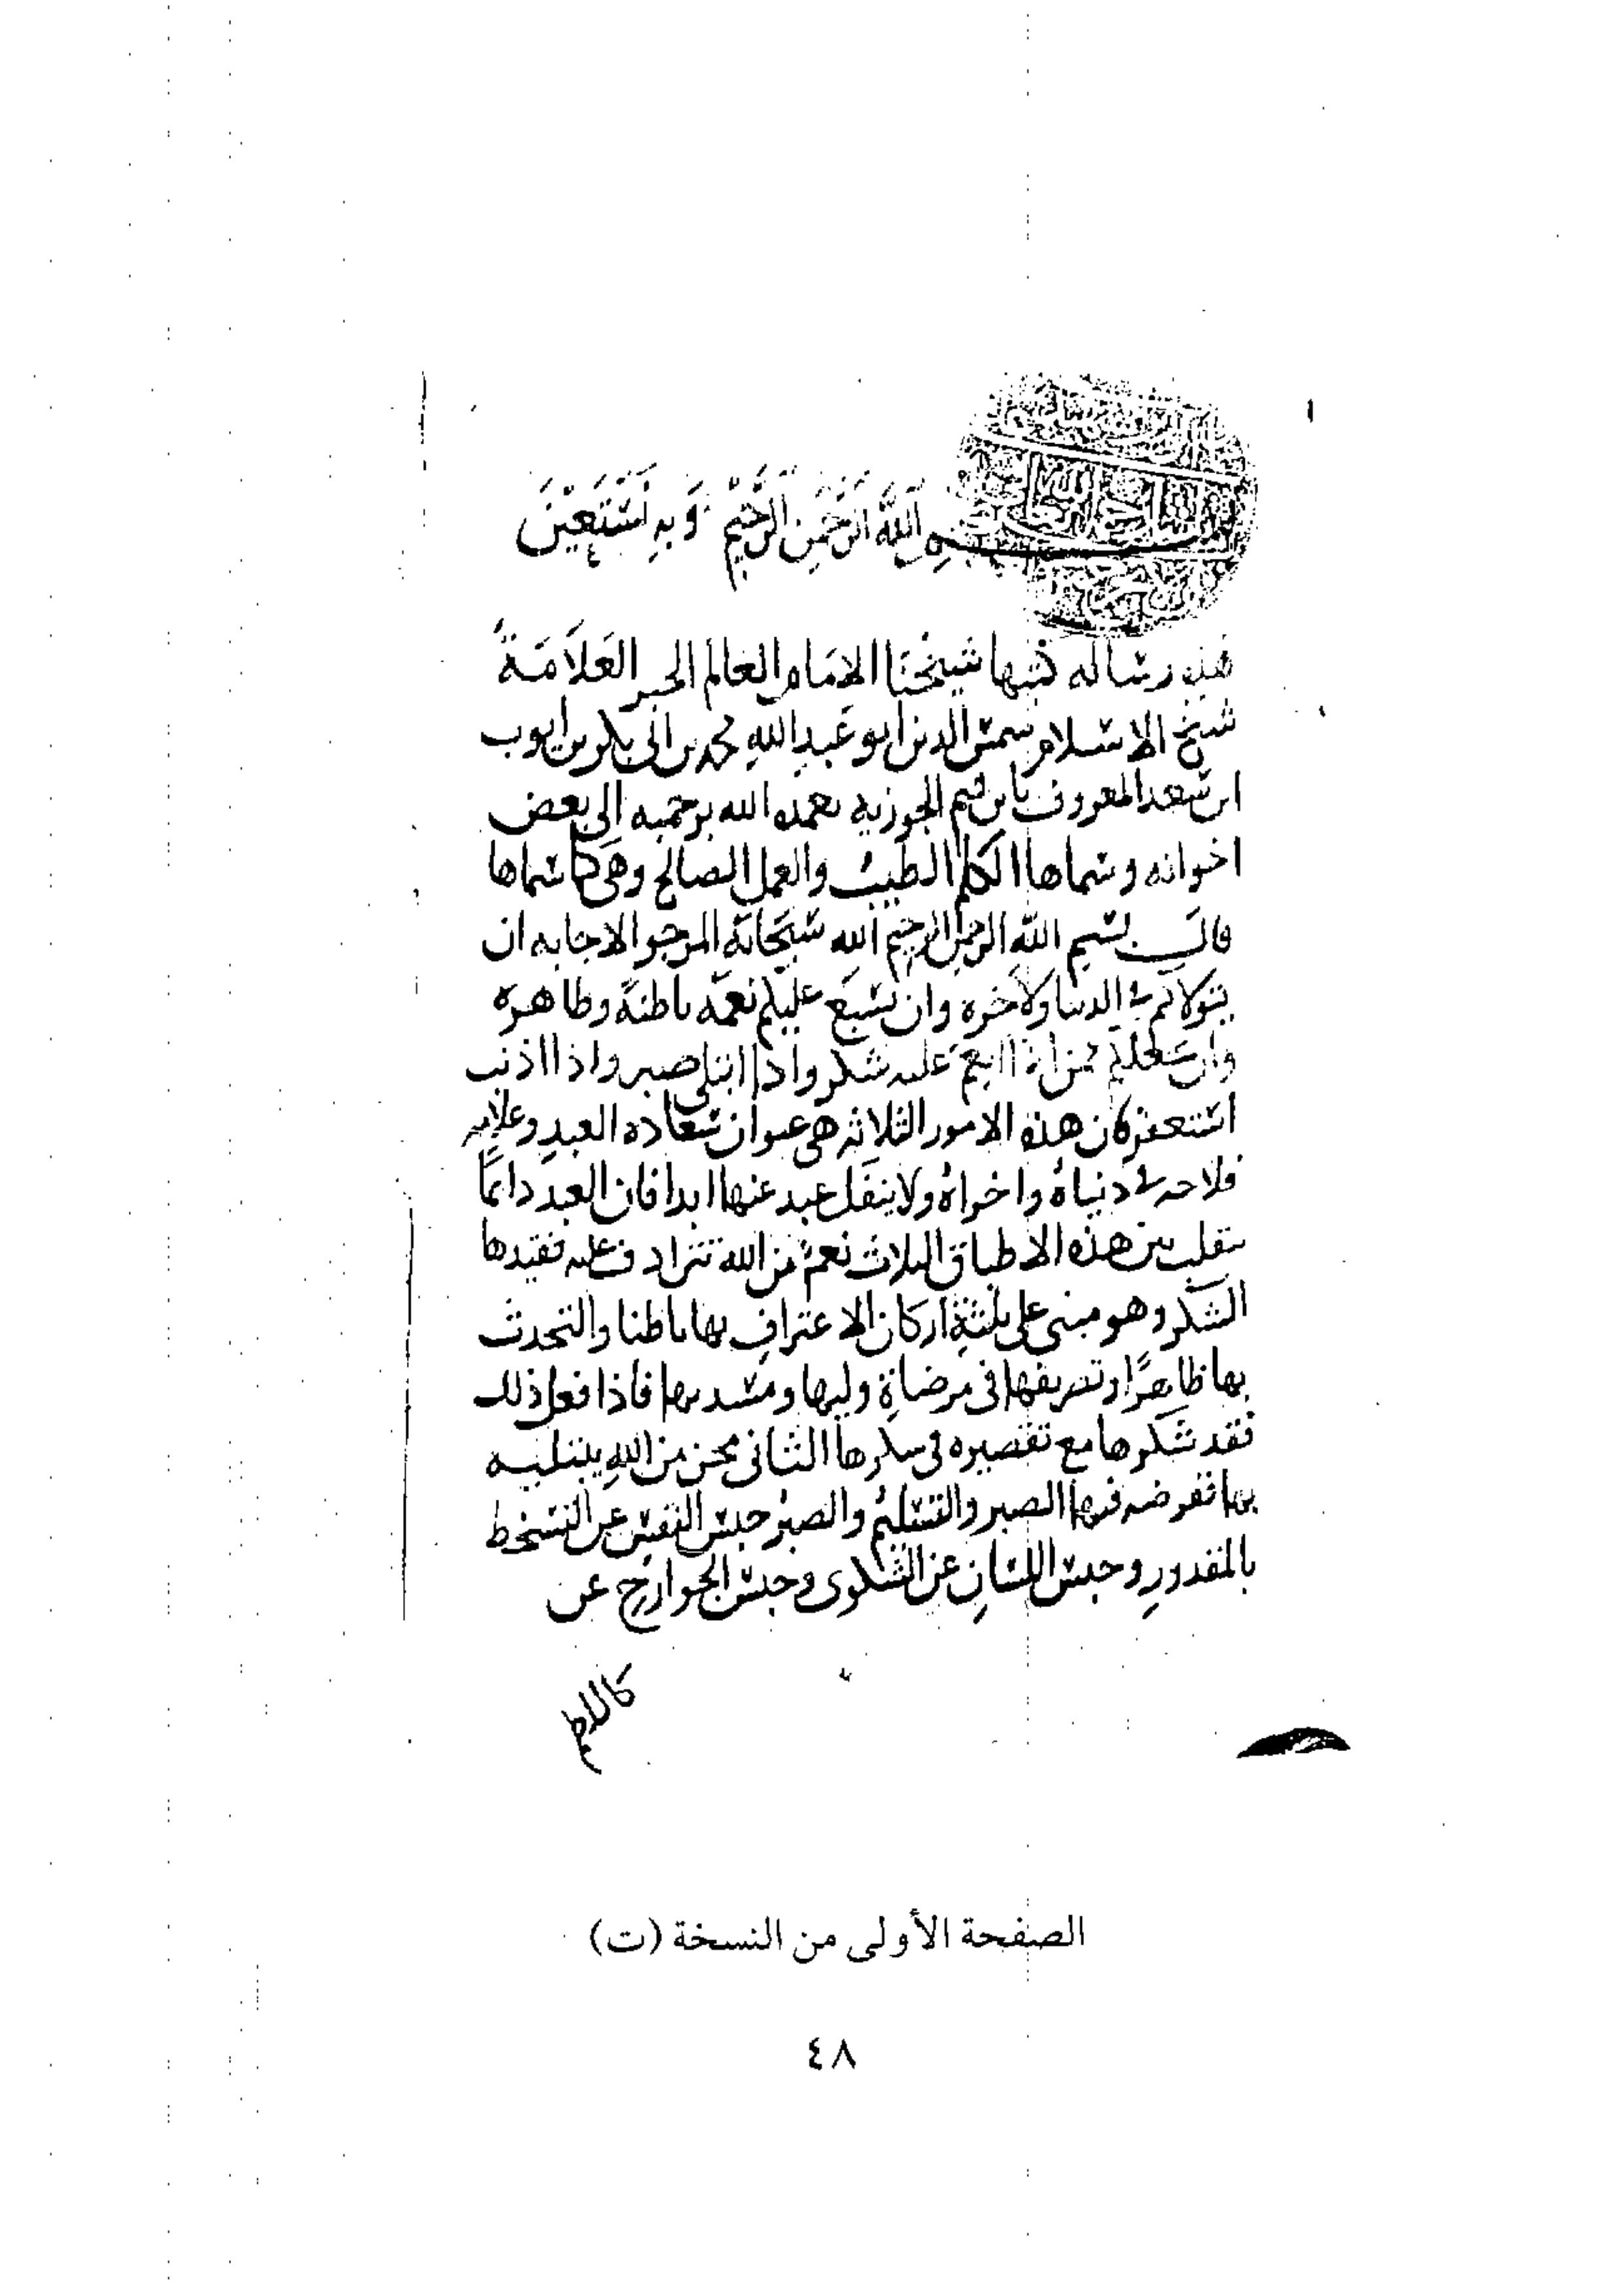 بسم اللَّه الرَّحْمَنِ الرَّحِيمِ وَبِهِ نَسْتَعِيْنُ
هذه رساله كتبها شيخنا الامام العالم الحبر العَلاَمَةُ
شيخ الاسلام شمس الدين ابو عَبدِ اللهِ محمد بن ابى بكر بن ايوب
ابن سعد المعروف بابن قيم الجوزيه تغمده الله برحمته إلى بعض
اخوانه وسماها الكلم الطيب والعمل الصالح وهى كما سماها
قال بسم الله الرحمن الرحيم الله سبحانه المرجو الاجابه ان
يتولاكم فى الدنيا ولاخره وان يسبغ عليكم نعمه باطنة وظاهرة
وان يجعلكم ممن اذا انعم عليه شكر واذا ابتلى صبر واذا اذنب
استغفر فان هذه الامور الثلاثه هى عنوان سعاده العبدِ وعلامه
فلاحه فى دنياهُ واخراهُ ولا ينفَك عبد عنها ابدا فان العبد دائما
يتقلب بين هذه الاطباق الثلاث نعم من الله تترادف عليه فقيدها
الشكر وهو مبنى على ثلثة اركان الاعترافِ بها باطنا والتحدث
بها ظاهرًا وتصريفها فى مرضاة وليها ومسديها فاذا فعل ذلك
فقد شكرها مع تقصيره فى شكرها الثانى محن من اللهِ يبتليه
بها ففرضه فيها الصبر والتسليم والصبرُ حبس النفس عن التسخط
بالمقدورِ وحبس اللسانِ عن الشكوى وحبس الجوارحِ عن
كاللطم
الصفحة الأولى من النسخة (ت)
٤٨